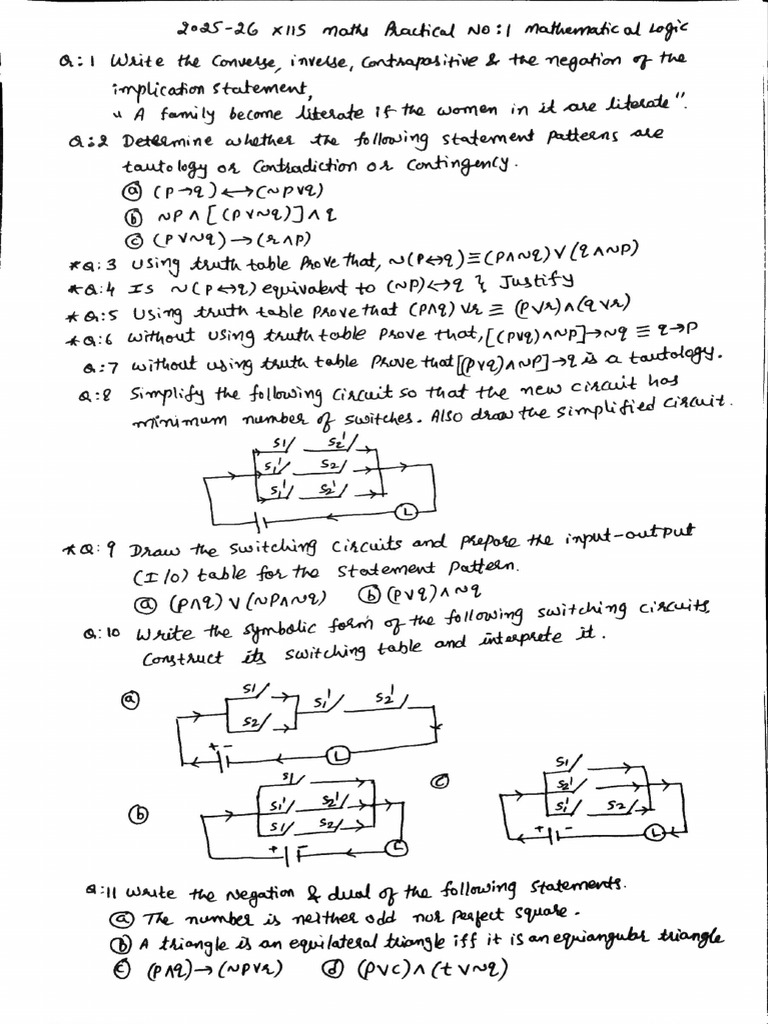 2025-26 XIIS Maths Practical NO:1 Mathematical Logic
Q:1 Write the Converse, inverse, Contrapositive & the negation of the
implication statement,
"A family become literate if the women in it are literate".
Q:2 Determine whether the following statement patterns are
tautology or Contradiction or Contingency.
ⓐ (P→q)↔(~P∨q)
ⓑ ~P∧[(P∨~q)]∧q
ⓒ (P∨~q)→(r∧P)
*Q:3 Using truth table Prove that, ~(P↔q)≡(P∧~q)∨(q∧~P)
*Q:4 Is ~(P↔q) equivalent to (~P)↔q ? Justify
*Q:5 Using truth table Prove that (P∧q)∨r ≡ (P∨r)∧(q∨r)
*Q:6 Without Using truth table Prove that, [(P∨q)∧~P]→~q ≡ q→P
Q:7 without using truth table Prove that [(P∨q)∧~P]→q is a tautology.
Q:8 Simplify the following Circuit so that the new circuit has
minimum number of switches. Also draw the simplified circuit.
S1 S2'
S1' S2
S1' S2'
L
*Q:9 Draw the switching Circuits and prepare the input-output
(I/O) table for the Statement Pattern.
ⓐ (P∧q)∨(~P∧~q) ⓑ (P∨q)∧~q
Q:10 Write the symbolic form of the following switching circuits,
Construct its switching table and interprete it.
ⓐ
S1 S1' S2'
S2
+ - L
ⓑ
S1
S1' S2'
S1 S2
+ - L
ⓒ
S1
S2'
S1' S2
+ - L
Q:11 Write the Negation & dual of the following Statements.
ⓐ The number is neither odd nor perfect square.
ⓑ A triangle is an equilateral triangle iff it is an equiangular triangle
ⓒ (P∧q)→(~P∨r) ⓓ (P∨c)∧(t∨~q)